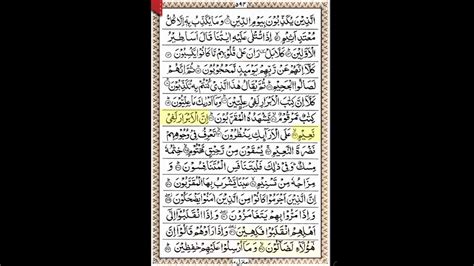 ٥٩٣
الَّذِيْنَ يُكَذِّبُوْنَ بِيَوْمِ الدِّيْنِ ۞ وَمَا يُكَذِّبُ بِهٖٓ اِلَّا كُلُّ
مُعْتَدٍ اَثِيْمٍ ۞ اِذَا تُتْلٰى عَلَيْهِ اٰيٰتُنَا قَالَ اَسَاطِيْرُ
الْاَوَّلِيْنَ ۞ كَلَّا بَلْ ۫ رَانَ عَلٰى قُلُوْبِهِمْ مَّا كَانُوْا يَكْسِبُوْنَ ۞
كَلَّآ اِنَّهُمْ عَنْ رَّبِّهِمْ يَوْمَئِذٍ لَّمَحْجُوْبُوْنَ ۞ ثُمَّ اِنَّهُمْ
لَصَالُوا الْجَحِيْمِ ۞ ثُمَّ يُقَالُ هٰذَا الَّذِيْ كُنْتُمْ بِهٖ تُكَذِّبُوْنَ ۞
كَلَّآ اِنَّ كِتٰبَ الْاَبْرَارِ لَفِيْ عِلِّيِّيْنَ ۞ وَمَآ اَدْرٰىكَ مَا عِلِّيُّوْنَ ۞
كِتٰبٌ مَّرْقُوْمٌ ۞ يَّشْهَدُهُ الْمُقَرَّبُوْنَ ۞ اِنَّ الْاَبْرَارَ لَفِيْ
نَعِيْمٍ ۞ عَلَى الْاَرَآئِكِ يَنْظُرُوْنَ ۞ تَعْرِفُ فِيْ وُجُوْهِهِمْ
نَضْرَةَ النَّعِيْمِ ۞ يُسْقَوْنَ مِنْ رَّحِيْقٍ مَّخْتُوْمٍ ۞ خِتٰمُهٗ
مِسْكٌ ۭ وَفِيْ ذٰلِكَ فَلْيَتَنَافَسِ الْمُتَنَافِسُوْنَ ۞
وَمِزَاجُهٗ مِنْ تَسْنِيْمٍ ۞ عَيْنًا يَّشْرَبُ بِهَا الْمُقَرَّبُوْنَ ۞
اِنَّ الَّذِيْنَ اَجْرَمُوْا كَانُوْا مِنَ الَّذِيْنَ اٰمَنُوْا يَضْحَكُوْنَ ۞
وَاِذَا مَرُّوْا بِهِمْ يَتَغَامَزُوْنَ ۞ وَاِذَا انْقَلَبُوْٓا اِلٰٓى
اَهْلِهِمُ انْقَلَبُوْا فَكِهِيْنَ ۞ وَاِذَا رَاَوْهُمْ قَالُوْٓا اِنَّ
هٰٓؤُلَآءِ لَضَآلُّوْنَ ۞ وَمَآ اُرْسِلُوْا عَلَيْهِمْ حٰفِظِيْنَ ۞